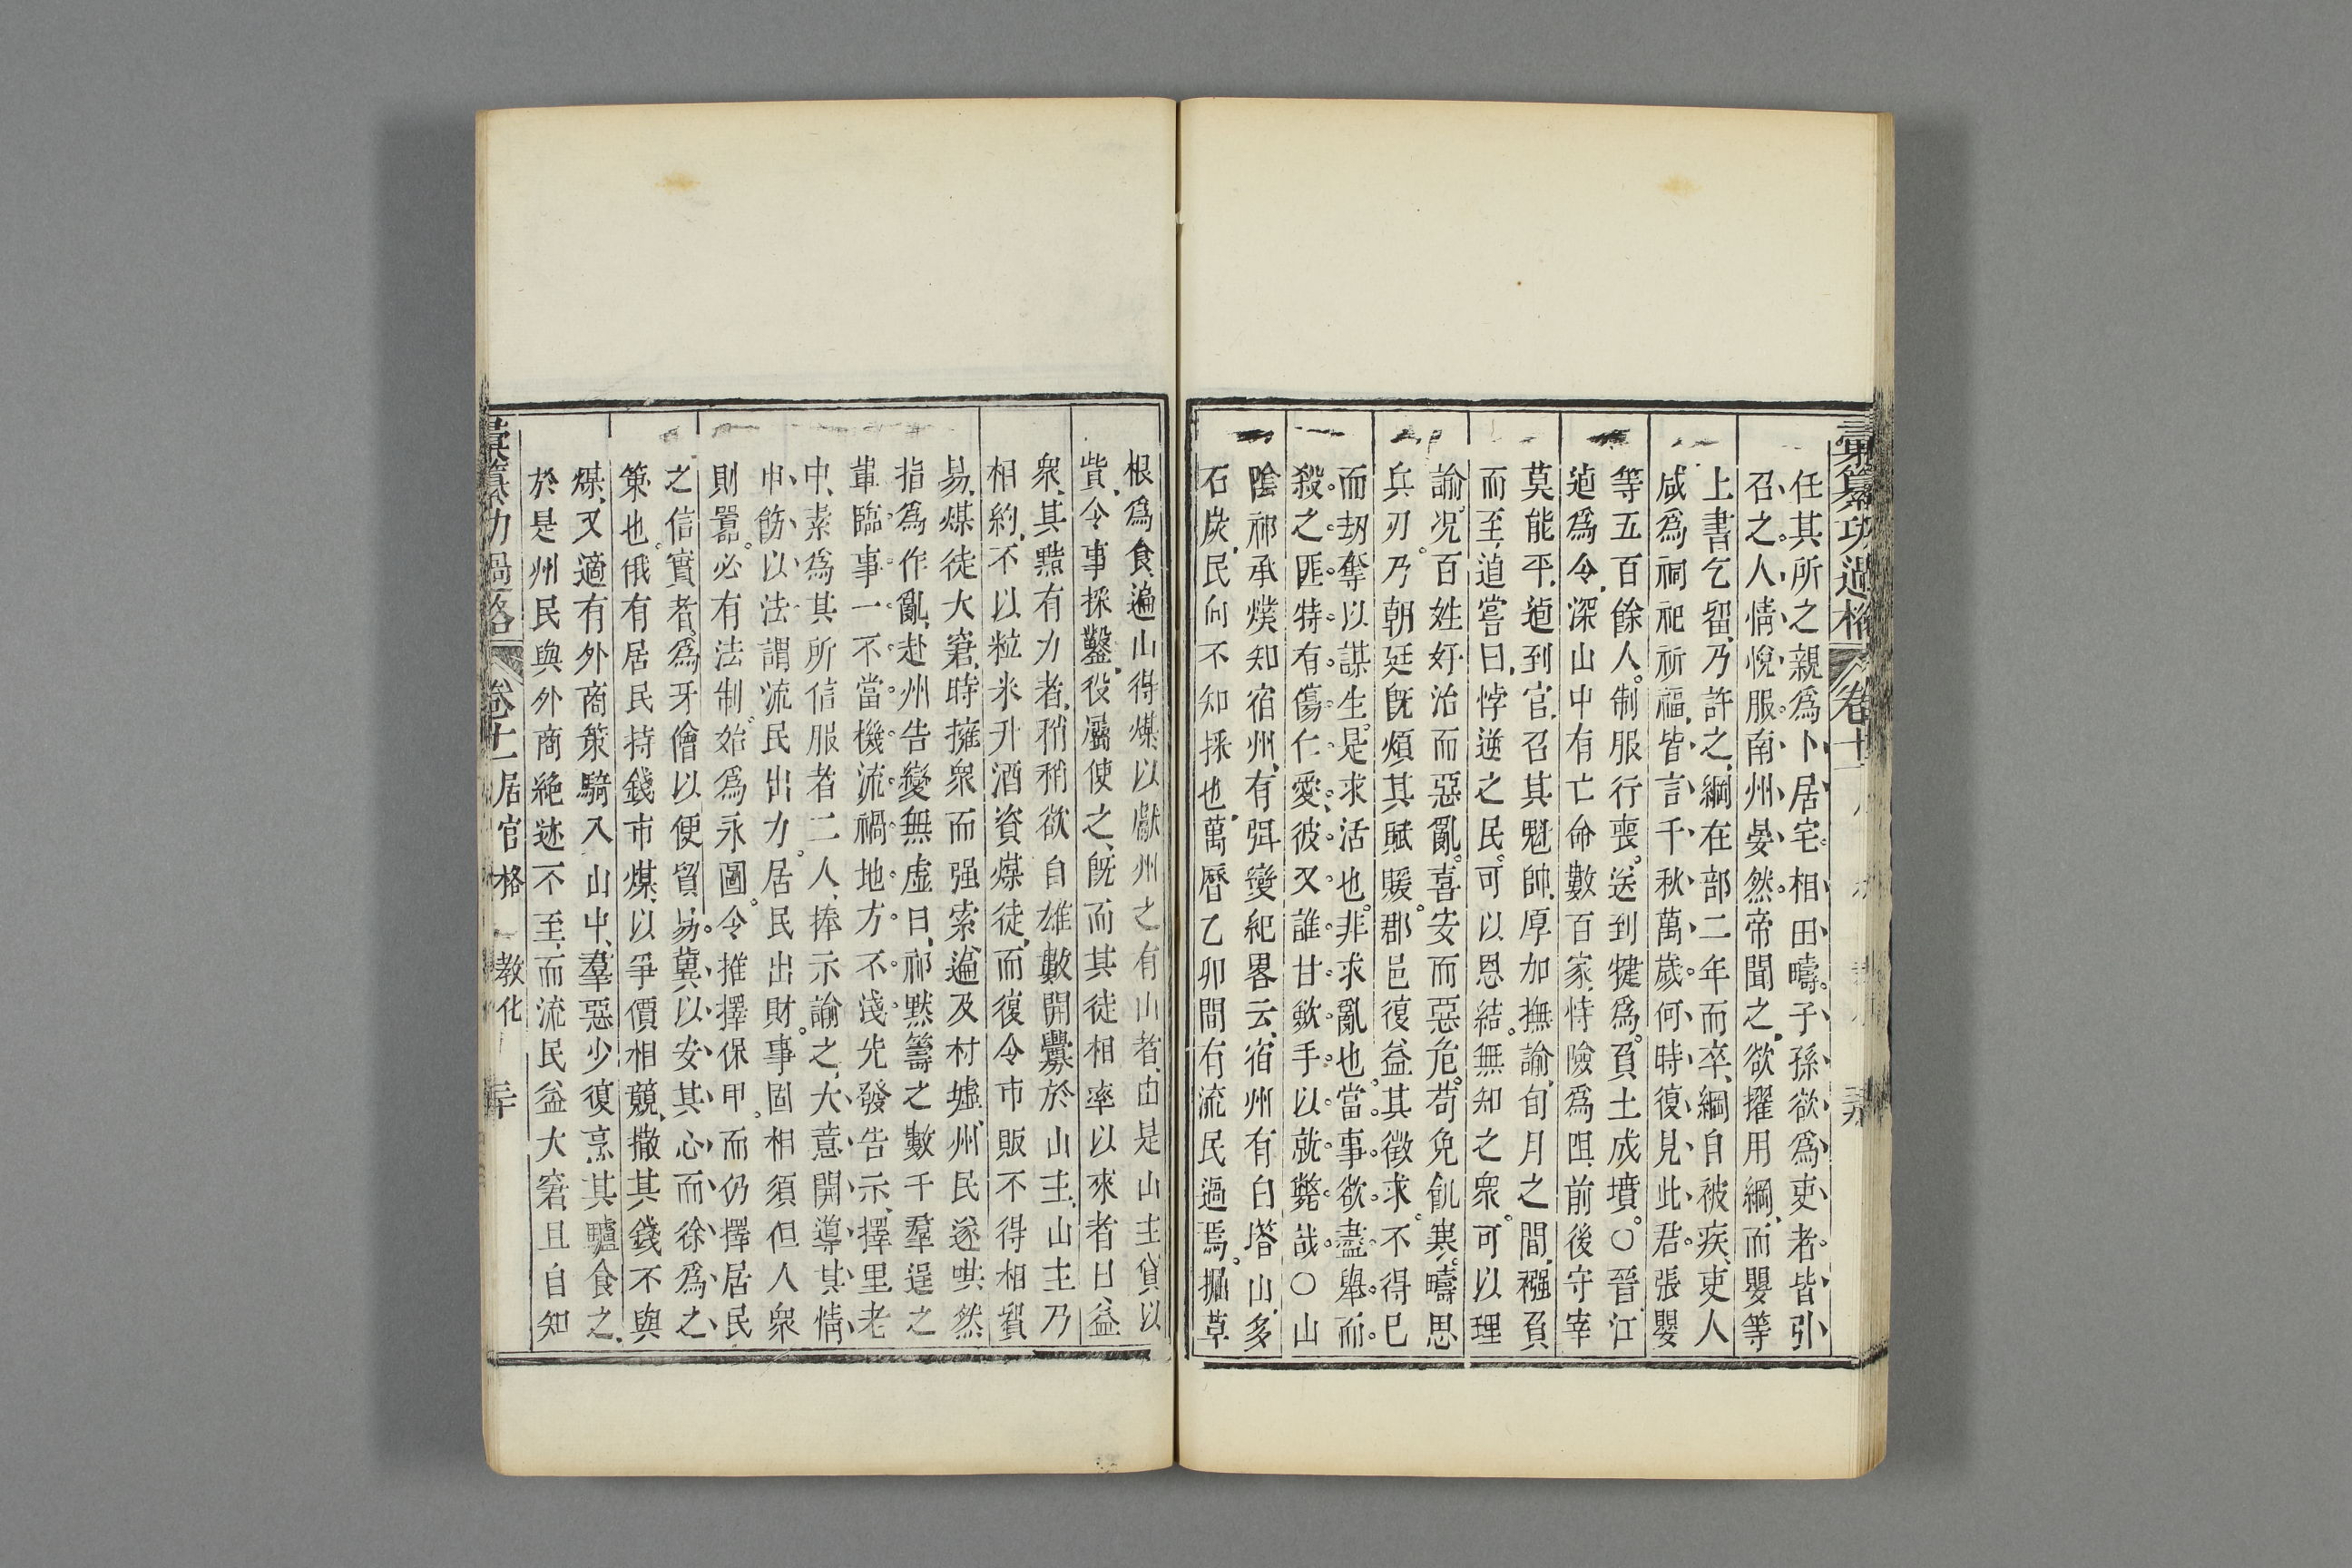 彙纂功過格 卷十一
任其所之親爲卜居宅相田疇子孫欲爲吏者皆引
召之人情悅服南州晏然帝聞之欲擢用綱而嬰等
上書乞留乃許之綱在部二年而卒綱自被疾吏人
咸爲祠祀祈福皆言千秋萬歲何時復見此君張嬰
等五百餘人制服行喪送到犍爲負土成墳○晉江
逌爲令深山中有亡命數百家恃險爲阻前後守宰
莫能平逌到官召其魁帥厚加撫諭旬月之間襁負
而至逌嘗曰悖逆之民可以恩結無知之衆可以理
諭况百姓好治而惡亂喜安而惡危苟免飢寒疇思
兵刃乃朝廷旣煩其賦賑郡邑復益其徵求不得已
而刼奪以謀生是求活也非求亂也當事欲盡舉而
殺之匪特有傷仁愛彼又誰甘歛手以就斃哉○山
陰祁承㸁知宿州有弭變紀畧云宿州有白塔山多
石炭民向不知採也萬曆乙卯間有流民過焉掘草
根爲食遍山得煤以獻州之有山者由是山主貸以
貲令事採鑿役屬使之旣而其徒相率以來者日益
衆其黠有力者稍稍欲自雄數開釁於山主山主乃
相約不以粒米升酒資煤徒而復令市販不得相貿
易煤徒大窘時擁衆而强索遍及村墟州民遂哄然
指爲作亂赴州告變無虛日祁默籌之數千羣逞之
輩臨事一不當機流禍地方不淺先發告示擇里老
中素爲其所信服者二人捧示諭之大意開導其情
申飭以法謂流民出力居民出財事固相須但人衆
則囂必有法制始爲永圖令推擇保甲而仍擇居民
之信實者爲牙儈以便貿易冀以安其心而徐爲之
策也俄有居民持錢市煤以爭價相競撒其錢不與
煤又適有外商策騎入山中羣惡少復烹其驢食之
於是州民與外商絶迹不至而流民益大窘且自知
彙纂功過格 卷十一 居官格 教化 三十